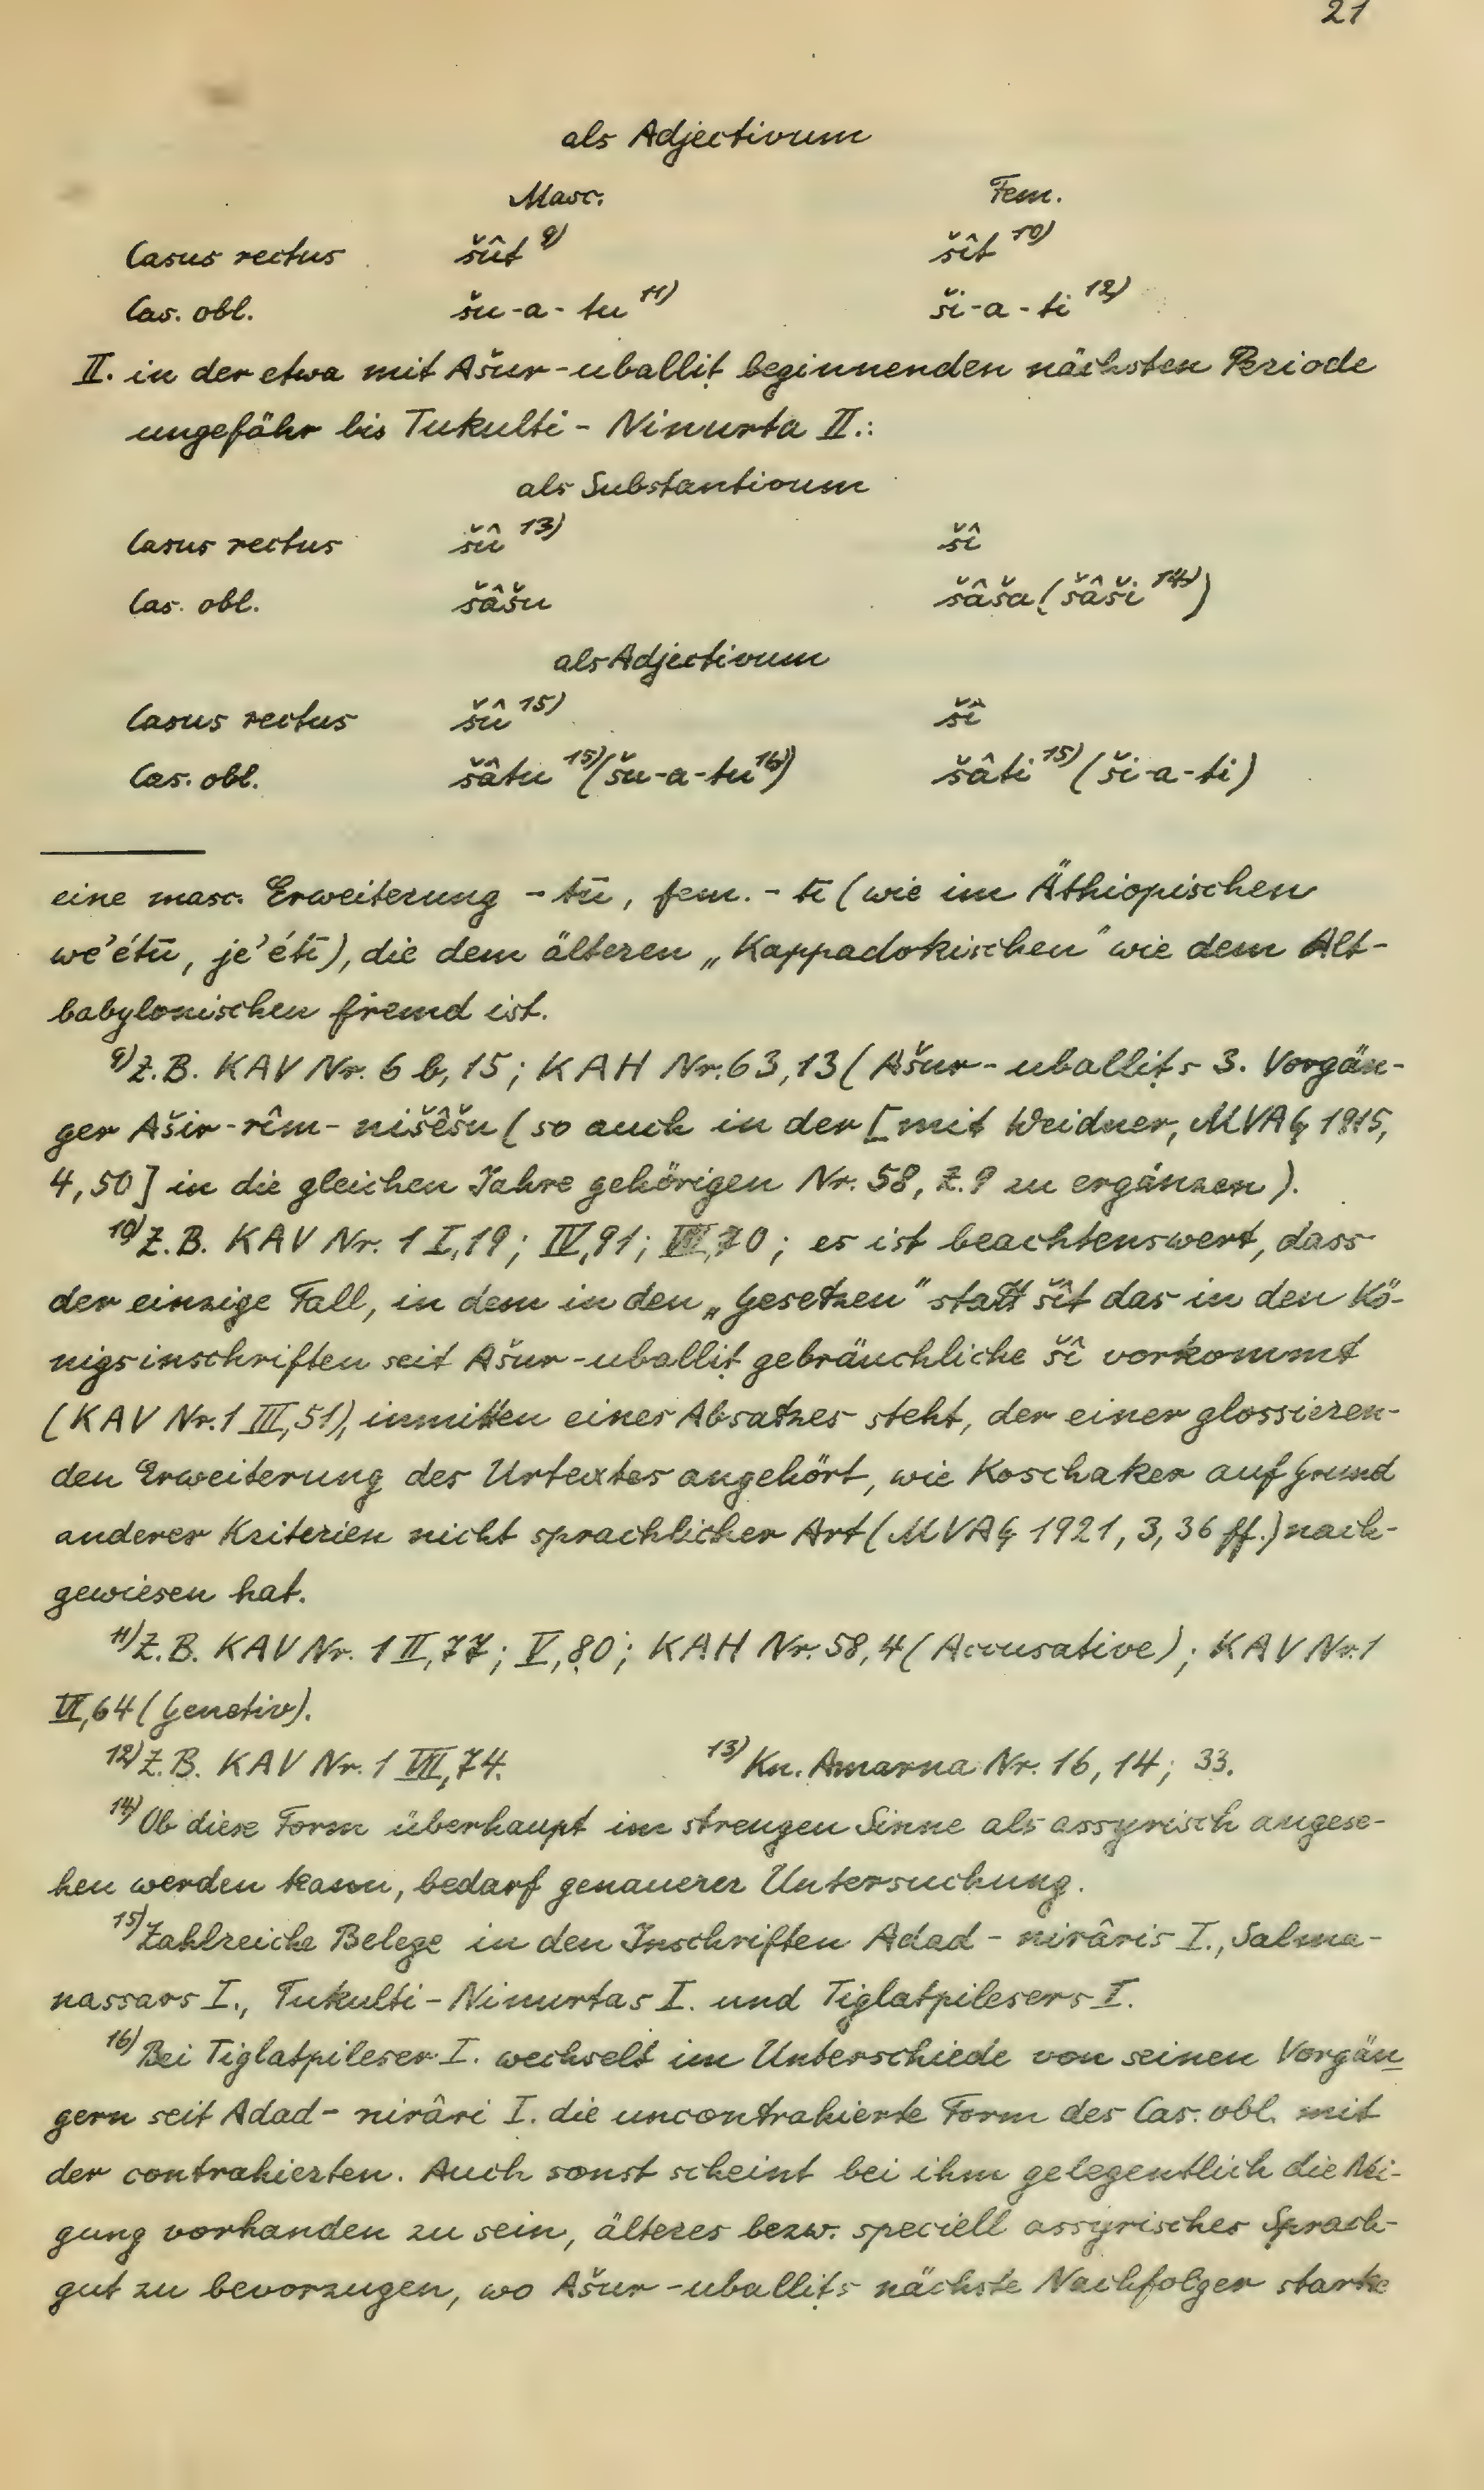 21
als Adjectivum
Masc. Fem.
Casus rectus šût 9) šît 10)
Cas. obl. šu-a-tu 11) ši-a-ti 12)
II. in der etwa mit Ašur-uballiṭ beginnenden nächsten Periode
ungefähr bis Tukulti-Ninurta II.:
als Substantivum
Casus rectus šû 13) šî
Cas. obl. šâšu šâša (šâši 14))
als Adjectivum
Casus rectus šû 15) šî
Cas. obl. šâtu 15) (šu-a-tu 16)) šâti 15) (ši-a-ti)
eine masc. Erweiterung -tū, fem. -tī (wie im Äthiopischen
we'étū, je'étī), die dem älteren „Kappadokischen" wie dem Alt-
babylonischen fremd ist.
9) Z.B. KAV Nr. 6 b, 15; KAH Nr. 63, 13 (Ašur-uballiṭs 3. Vorgän-
ger Ašir-rîm-nišêšu (so auch in der [mit Weidner, MVAG 1915,
4, 50] in die gleichen Jahre gehörigen Nr. 58, Z. 9 zu ergänzen).
10) Z.B. KAV Nr. 1 I, 19; IV, 91; VII, 70; es ist beachtenswert, dass
der einzige Fall, in dem in den „Gesetzen" statt šît das in den Kö-
nigsinschriften seit Ašur-uballiṭ gebräuchliche šî vorkommt
(KAV Nr. 1 III, 51), inmitten eines Absatzes steht, der einer glossieren-
den Erweiterung des Urtextes angehört, wie Koschaker auf Grund
anderer Kriterien nicht sprachlicher Art (MVAG 1921, 3, 36 ff.) nach-
gewiesen hat.
11) Z.B. KAV Nr. 1 II, 77; V, 80; KAH Nr. 58, 4 (Accusative); KAV Nr. 1
VI, 64 (Genetiv).
12) Z.B. KAV Nr. 1 VII, 74. 13) Kn. Amarna Nr. 16, 14; 33.
14) Ob diese Form überhaupt im strengen Sinne als assyrisch angese-
hen werden kann, bedarf genauerer Untersuchung.
15) Zahlreiche Belege in den Inschriften Adad-nirâris I., Salma-
nassars I., Tukulti-Ninurtas I. und Tiglatpilesers I.
16) Bei Tiglatpileser I. wechselt im Unterschiede von seinen Vorgän-
gern seit Adad-nirâri I. die uncontrahierte Form des Cas. obl. mit
der contrahierten. Auch sonst scheint bei ihm gelegentlich die Nei-
gung vorhanden zu sein, älteres bezw. speciell assyrisches Sprach-
gut zu bevorzugen, wo Ašur-uballiṭs nächste Nachfolger starke